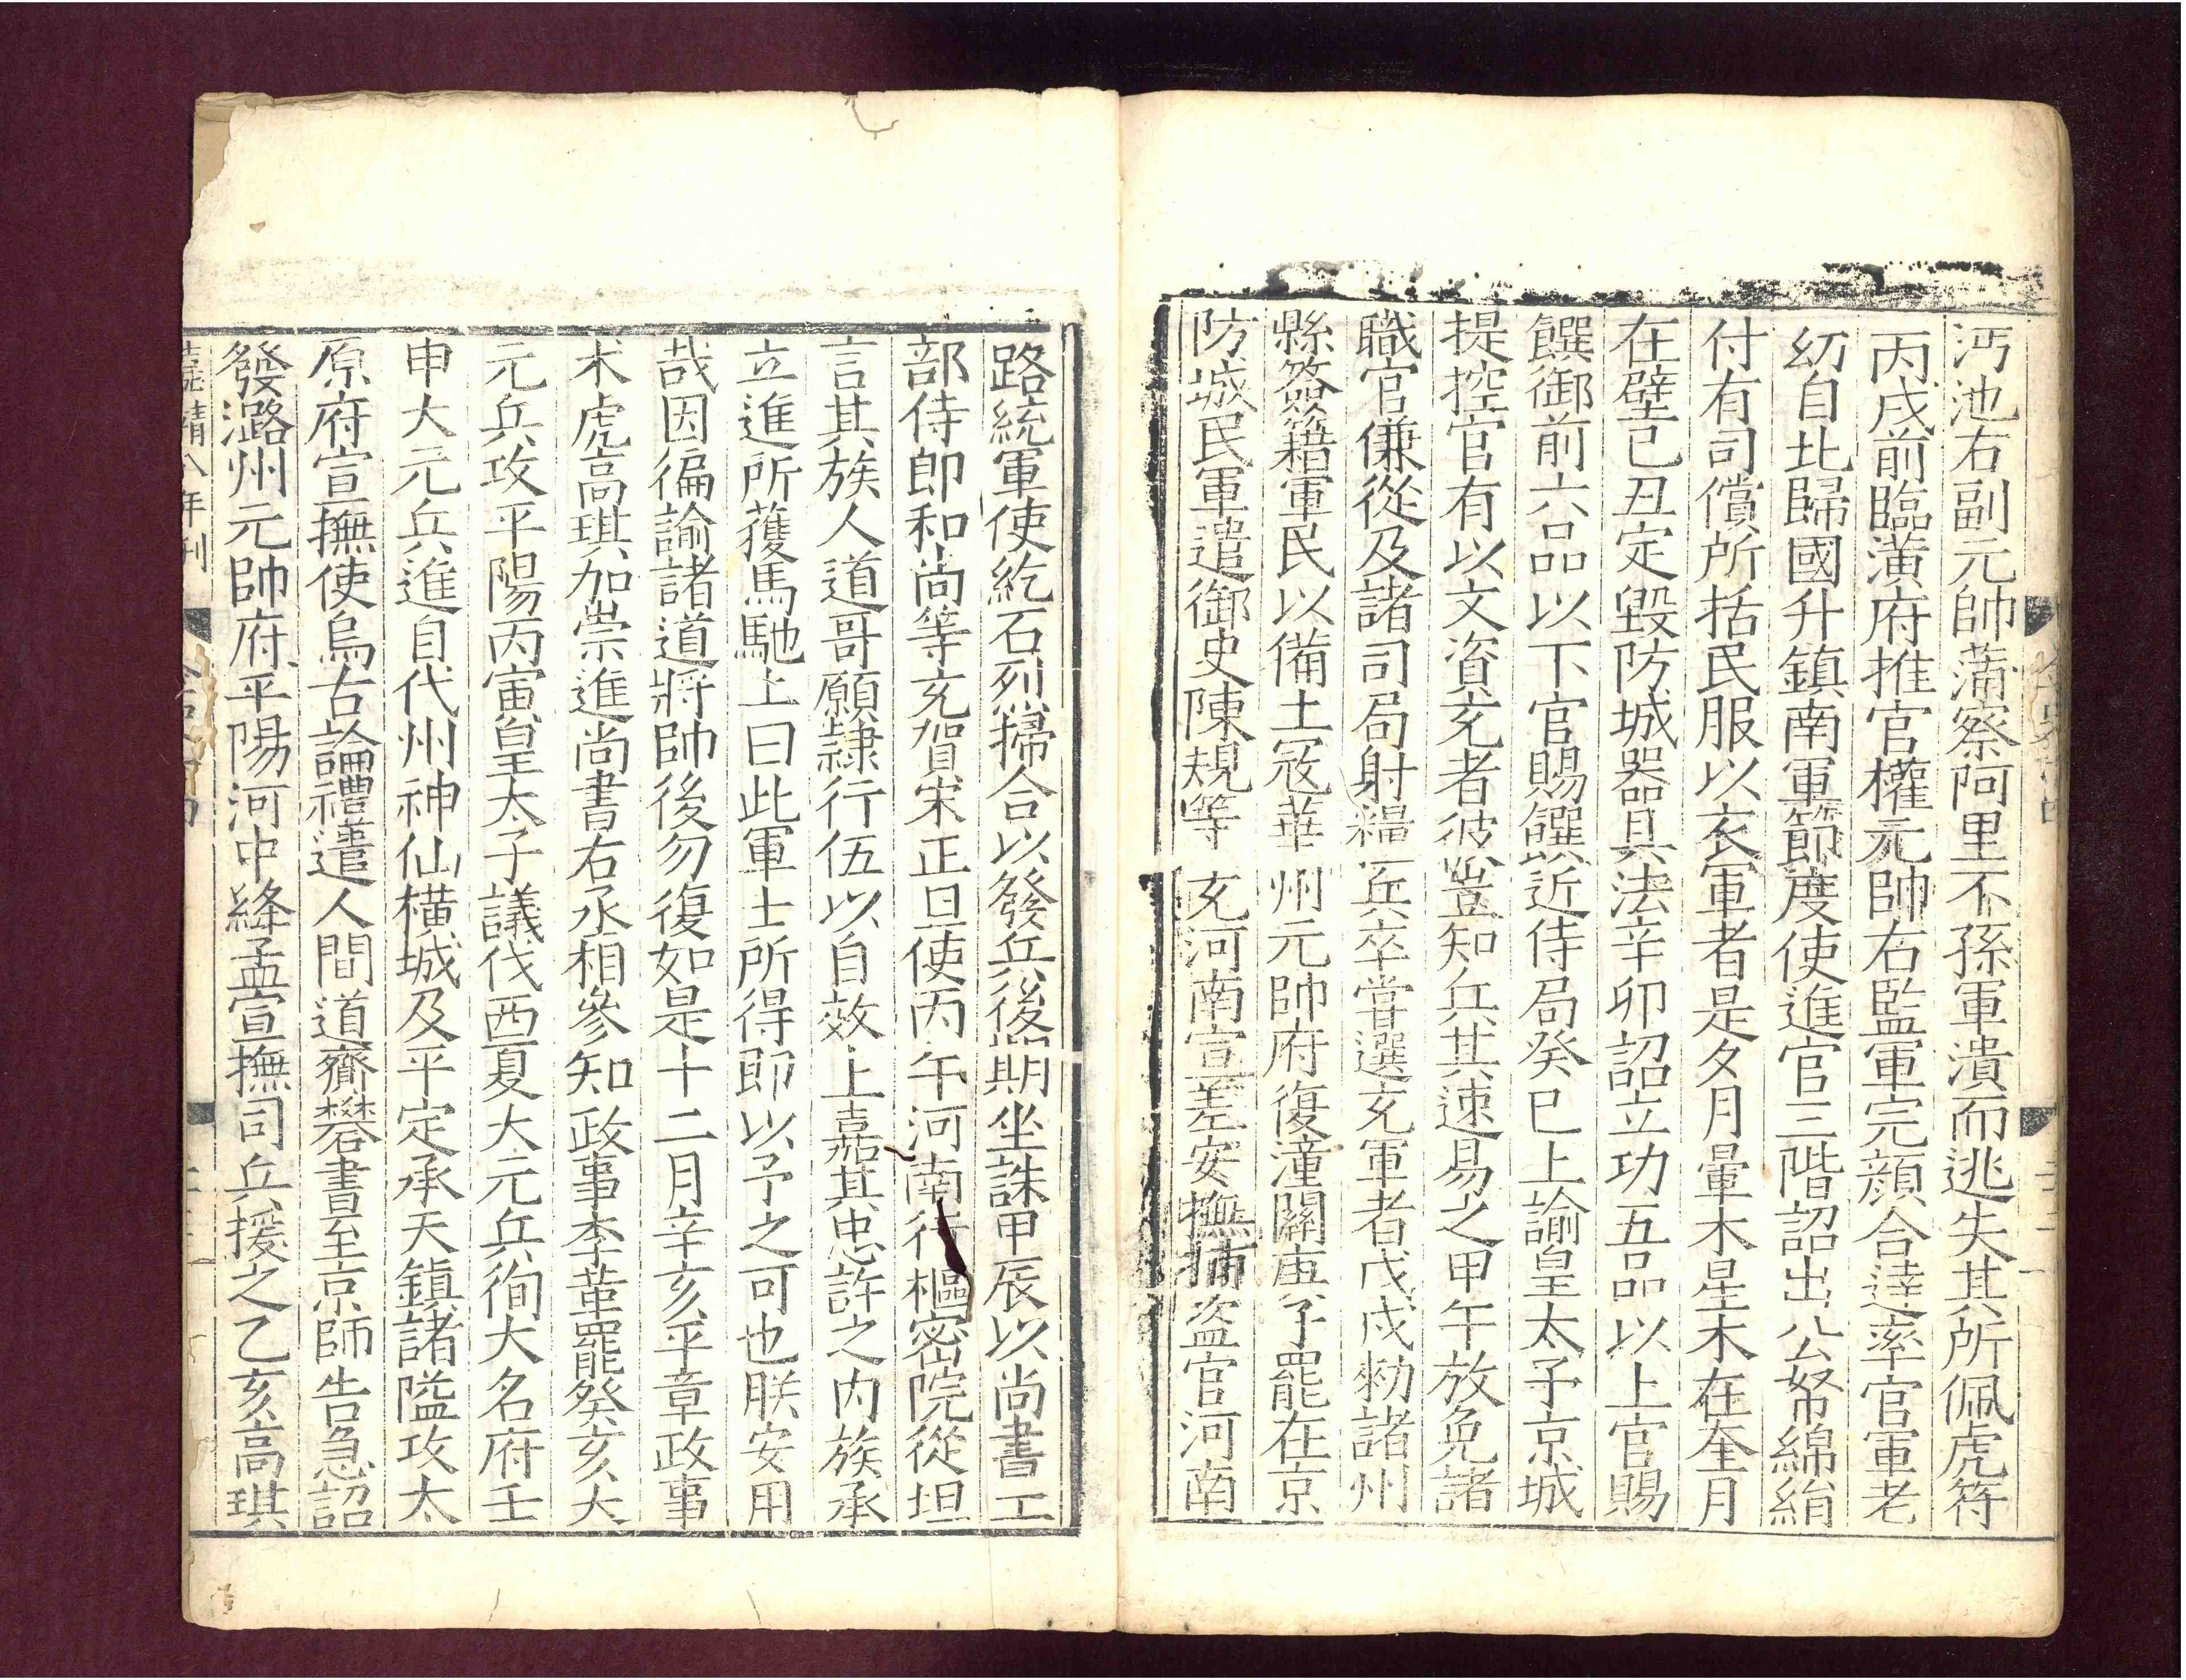 沔池右副元帥蒲察阿里不孫軍潰而逃失其所佩虎符
丙戌前臨潢府推官權元帥右監軍完顔合達率官軍老
幼自北歸國升鎮南軍節度使進官三階詔出公帑綿絹
付有司償所括民服以衣軍者是夕月暈木星木在奎月
在壁己丑定毀防城器具法辛卯詔立功五品以上官賜
饌御前六品以下官賜饌於近侍局癸巳上諭皇太子京城
提控官有以文資充者彼豈知兵其速易之甲午放免諸
職官傔從及諸司局射糧兵卒嘗選充軍者戊戌勑諸州
縣簽籍軍民以備土寇華州元帥府復潼關庚子罷在京
防城民軍遣御史陳規等充河南宣差安撫捕盜官河南
路統軍使紇石烈掃合以發兵後期坐誅甲辰以尚書工
部侍郎和尚等充賀宋正旦使丙午河南行樞密院從坦
言其族人道哥願隸行伍以自效上嘉其忠許之内族承
立進所獲馬馳上曰此軍士所得即以予之可也朕安用
哉因徧諭諸道將帥後勿復如是十二月辛亥平章政事
术虎高琪加崇進尚書右丞相參知政事李革罷癸亥大
元兵攻平陽丙寅皇太子議伐西夏大元兵徇大名府壬
申大元兵進自代州神仙橫城及平定承天鎮諸隘攻太
原府宣撫使烏古論禮遣人間道齎礬書至京師告急詔
發潞州元帥府平陽河中絳孟宣撫司兵援之乙亥高琪
嘉靖八年刊